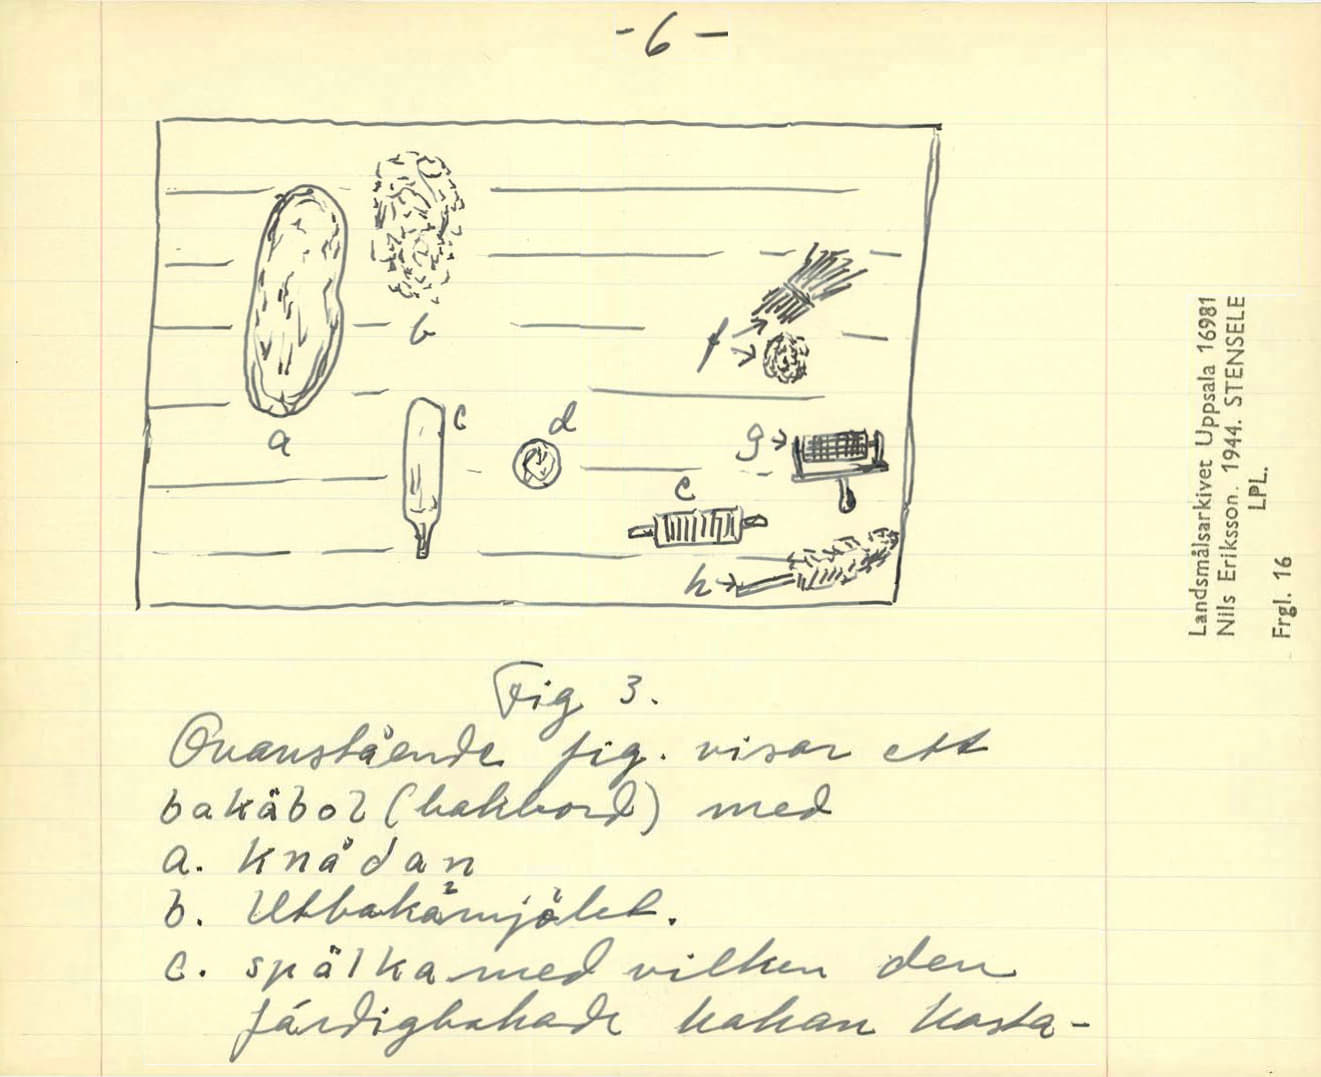 - 6 -
a
b
c
d
e
f
g
h
Fig 3.
Ovanstående fig. visar ett
bakäbol (bakbord) med
a. knådan
b. Utbakämjölet.
c. spälka med vilken den
färdigbakade kakan kasta-
Landsmålsarkivet Uppsala 16981
Nils Eriksson. 1944. STENSELE
LPL.
Frgl. 16